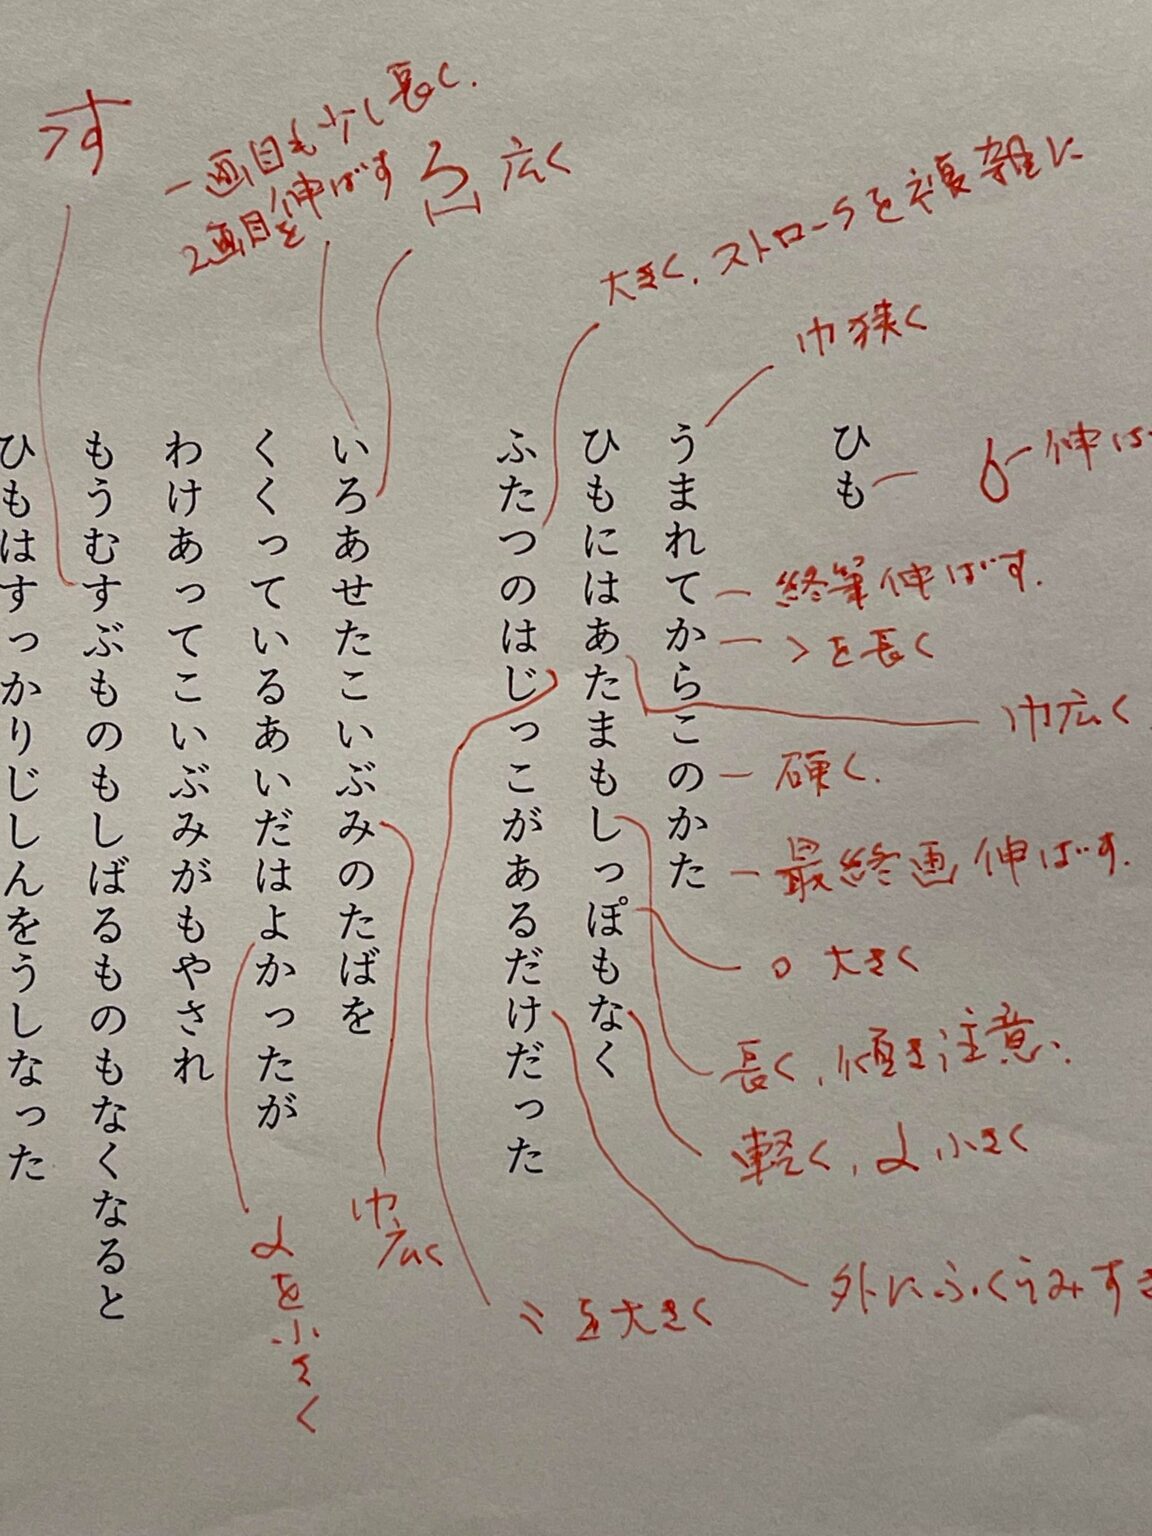 ひも
うまれてからこのかた
ひもにはあたまもしっぽもなく
ふたつのはじっこがあるだけだった
いろあせたこいぶみのたばを
くくっているあいだはよかったが
わけあってこいぶみがもやされ
もうむすぶものもしばるものもなくなると
ひもはすっかりじしんをうしなった
す
一画目も少し長く.
2画目を伸ばす
ろ 広く
大きく、ストロークを複雑に
巾狭く
伸ば
終筆伸ばす.
を長く
巾広く
硬く.
最終画伸ばす.
○ 大きく
長く、傾き注意.
軽く、小さく
外にふくらみすぎ
゛を大きく
巾広く
を小さく